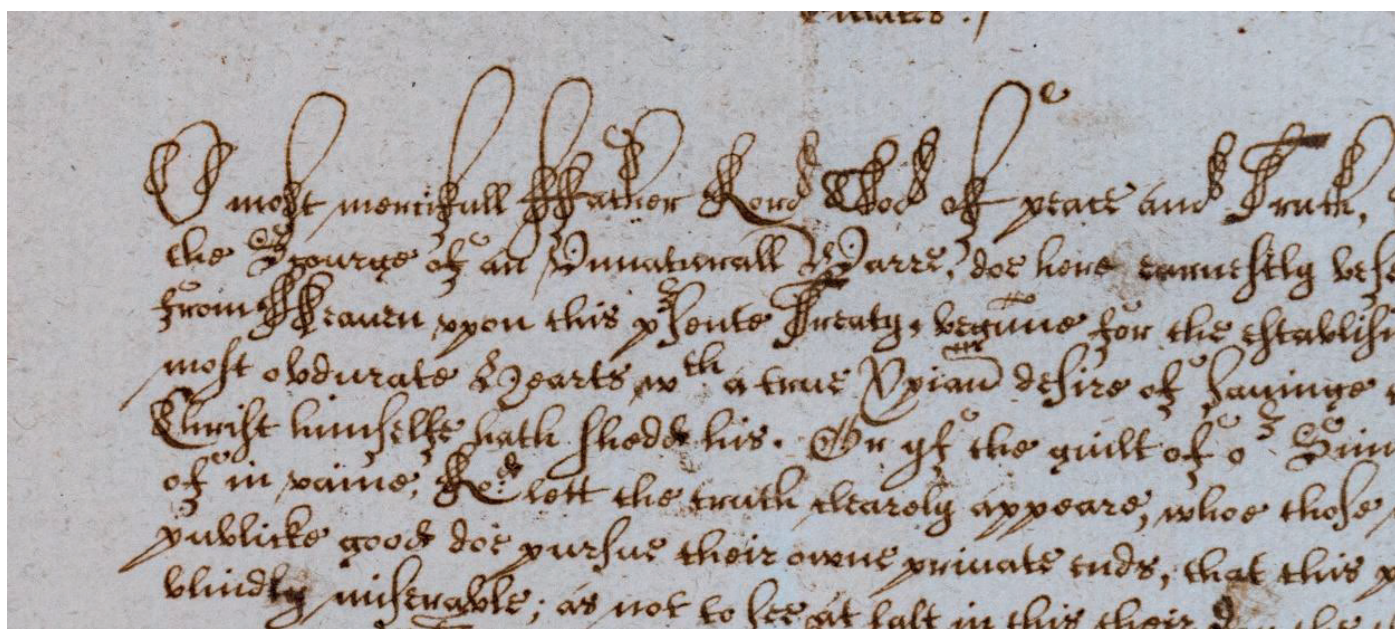 O most mercifull ffather Lord God of peace and Truth,
the Scourge of an Vnnaturall Warre, doe here earnestly bese
from Heauen vpon this pʳsente Treaty, begunne for the establish
most obdurate Hearts wᵗʰ a true Xpian desire of sauinge
Christ himselfe hath shedd his. Or yf the guilt of oʳ Sinn
of in vaine, Loʳᵈ lett the truth clearely appeare, whoe those
publicke good doe pursue their owne priuate ends, that this p
blindly miserable; as not to see at last in this their day the